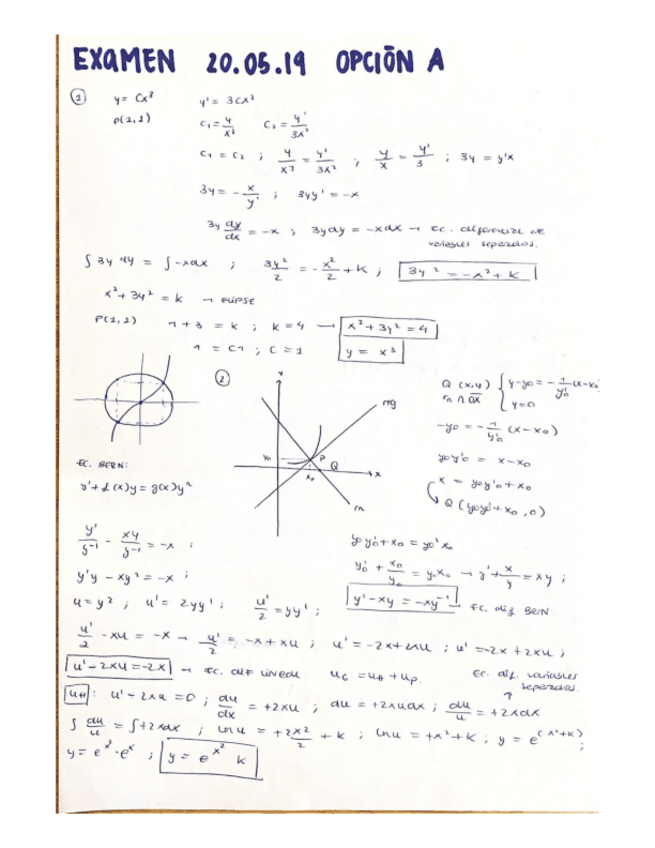 EXAMEN 20.05.19 OPCIÓN A
① y = Cx³ y' = 3Cx²
P(1,1) C₁ = y/x³ C₂ = y'/3x²
C₁ = C₂ ; y/x³ = y'/3x² ; y/x = y'/3 ; 3y = y'x
3y = -x/y' ; 3yy' = -x
3y dy/dx = -x ; 3ydy = -xdx → Ec. diferencial de
variables separadas.
∫3y dy = ∫-xdx ; 3y²/2 = -x²/2 + K ; 3y² = -x² + K
x² + 3y² = K → ELIPSE
P(1,1) 1 + 3 = K ; K = 4 → x² + 3y² = 4
1 = C1 ; C = 1 y = x³
②
y
rtg
y₀
P
Q
x₀
x
rn
Q (x,y) { y-y₀ = -1/y'₀ (x-x₀
rn ∩ OX y = 0
-y₀ = -1/y'₀ (x-x₀)
y₀y'₀ = x-x₀
x = y₀y'₀ + x₀
Q (y₀y'₀ + x₀, 0)
EC. BERN:
y' + f(x)y = g(x)y²
y'/y⁻¹ - xy/y⁻¹ = -x ;
y'y - xy² = -x ;
u = y² ; u' = 2yy' ; u'/2 = yy' ;
y₀y'₀ + x₀ = y₀²x₀
y'₀ + x₀/y₀ = y₀x₀ → y' + x/y = xy ;
y' - xy = -xy⁻¹ → Ec. dif BERN
u'/2 - xu = -x → u'/2 = -x + xu ; u' = -2x + 2xu ; u' = -2x + 2xu ;
u' - 2xu = -2x → Ec. dif lineal uG = uH + up.
Ec. dif. variables
separadas.
uH : u' - 2xu = 0 ; du/dx = +2xu ; du = +2xudx ; du/u = +2xdx
∫ du/u = ∫+2xdx ; lnu = +2x²/2 + K ; lnu = +x² + K ; y = e^(x²+K) ;
y = e^x² · e^K ; y = e^x² K